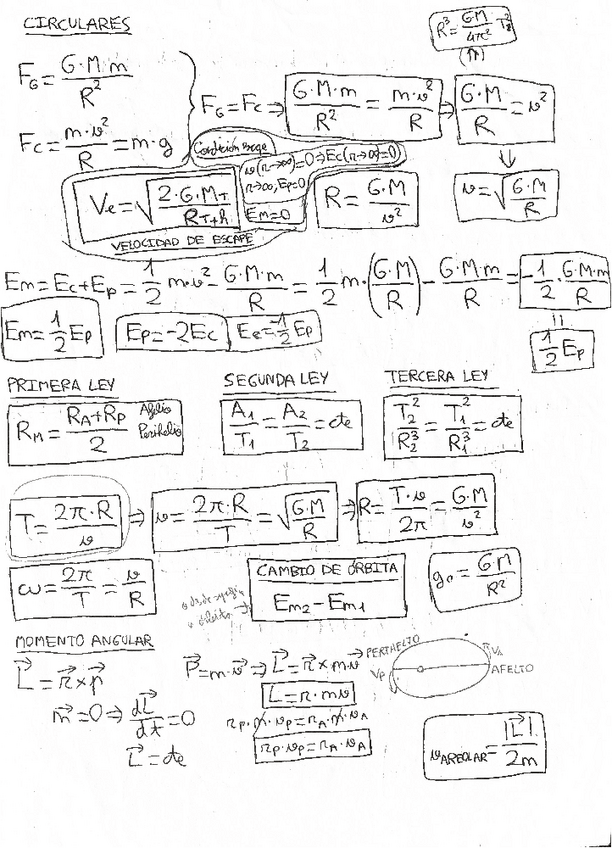 CIRCULARES
R³ = G·M/4π² T²
(⇑)
F_G = G·M·m/R²
F_C = m·v²/R = m·g
F_G = F_C ⇒ G·M·m/R² = m·v²/R ⇒ G·M/R = v²
↓
v = √(G·M/R)
Condición escape
v(r→∞)=0 ⇒ Ec(r→∞)=0
r→∞, Ep=0
Em=0
Ve = √(2·G·M_T/R_T+h)
VELOCIDAD DE ESCAPE
R = G·M/v²
Em = Ec+Ep = 1/2 m·v² - G·M·m/R = 1/2 m·(G·M/R) - G·M·m/R = -1/2·G·M·m/R
=
1/2 Ep
Em = 1/2 Ep
Ep = -2Ec
Ec = -1/2 Ep
PRIMERA LEY
R_M = R_A+R_P/2
Afelio
Perihelio
SEGUNDA LEY
A₁/T₁ = A₂/T₂ = cte
TERCERA LEY
T₂²/R₂³ = T₁²/R₁³ = cte
T = 2π·R/v ⇒ v = 2π·R/T = √(G·M/R) ⇒ R = T·v/2π = G·M/v²
ω = 2π/T = v/R
CAMBIO DE ÓRBITA
Em₂ - Em₁
g₀ = GM/R²
MOMENTO ANGULAR
L⃗ = r⃗ × p⃗
m⃗ = 0 ⇒ dL⃗/dt = 0
L⃗ = cte
P⃗ = m·v⃗ ⇒ L⃗ = r⃗ × m·v⃗
L = r·mv
r_P·m·v_P = r_A·m·v_A
r_P·v_P = r_A·v_A
PERIAFELTO
V_P
V_A
AFELTO
v_AREOLAR = |L⃗|/2m